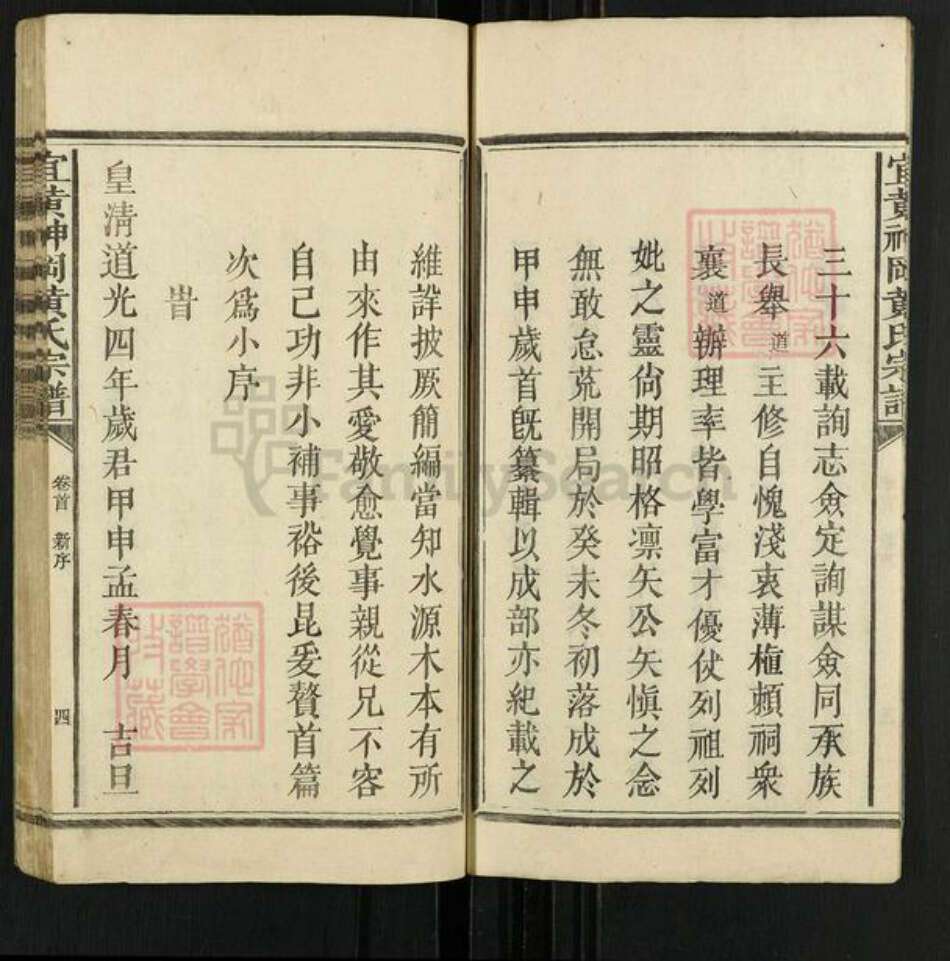 宜黄神岡黄氏宗譜
三十六載詢志僉定詢謀僉同承族
長舉道主修自愧淺衷薄植頼祠衆
襄道辦理率皆學富才優仗列祖列
妣之靈尙期昭格凛矢公矢愼之念
無敢怠荒開局於癸未冬初落成於
甲申歲首旣纂輯以成部亦紀載之
維詳披厥簡編當知水源木本有所
由來作其愛敬愈覺事親從兄不容
自己功非小補事裕後昆爰贅首篇
次爲小序
旹
皇淸道光四年歲君甲申孟春月　吉旦
宜黄神岡黄氏宗譜
卷首　新序
四
FamilySearch